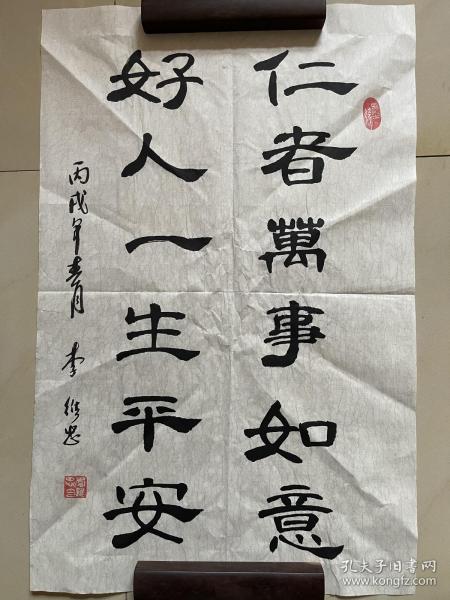 仁者萬事如意
好人一生平安
丙戌年春月 李維忠
孔夫子旧书网
www.kongfz.com